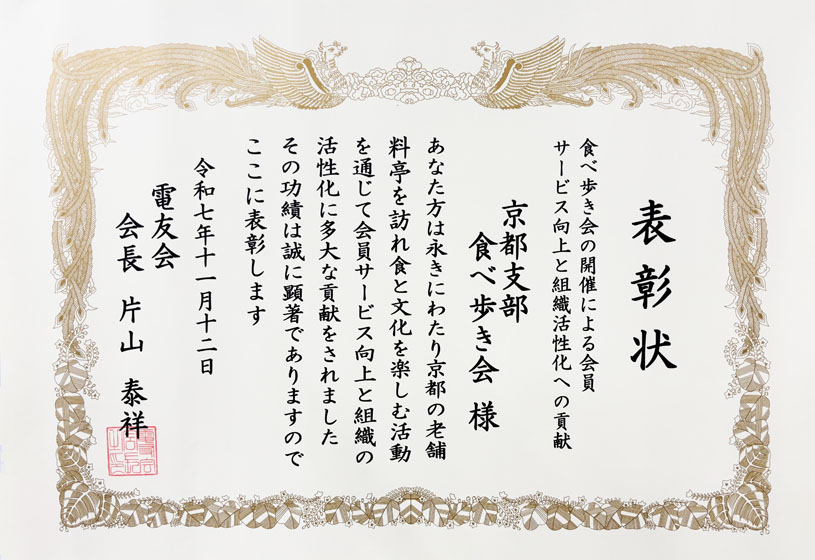 表彰状
食べ歩き会の開催による会員
サービス向上と組織活性化への貢献
京都支部
食べ歩き会 様
あなた方は永きにわたり京都の老舗
料亭を訪れ食と文化を楽しむ活動
を通じて会員サービス向上と組織の
活性化に多大な貢献をされました
その功績は誠に顕著でありますので
ここに表彰します
令和七年十一月十二日
電友会
会長 片山 泰祥